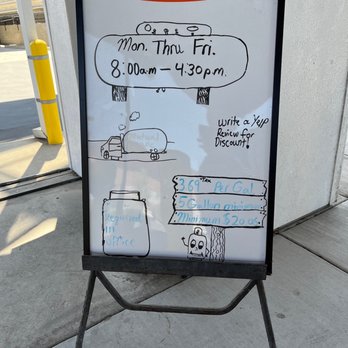 Mon. Thru Fri.
8:00am – 4:30pm.
Write a Yelp
Review for
Discount!
3.69 + tax Per Gal
5 Gallon minimum
Minimum $20.00
Required
in
office